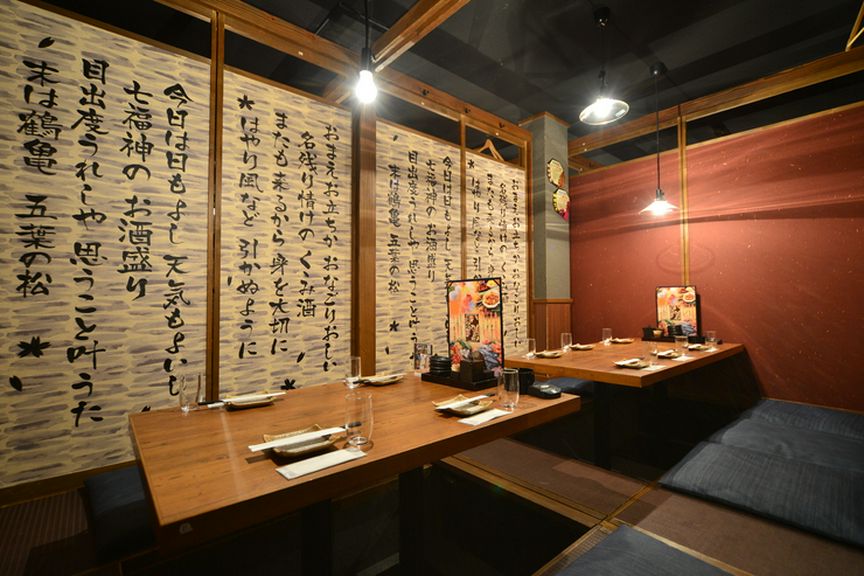 おまえお立ちか おなごりおしい
名残り情けの くゝみ酒
またも来るから 身を大切に
はやり風など 引かぬように
今日は日もよし 天気もよいし
七福神の お酒盛り
目出度うれしや 思うこと叶うた
末は鶴亀 五葉の松
おまえお立ちか おなごりおしい
名残り情けの
またも来るから
はやり風など 引かぬ
今日は日もよし 天気
七福神の お酒盛り
目出度うれしや 思うこと叶う
末は鶴亀 五葉の松